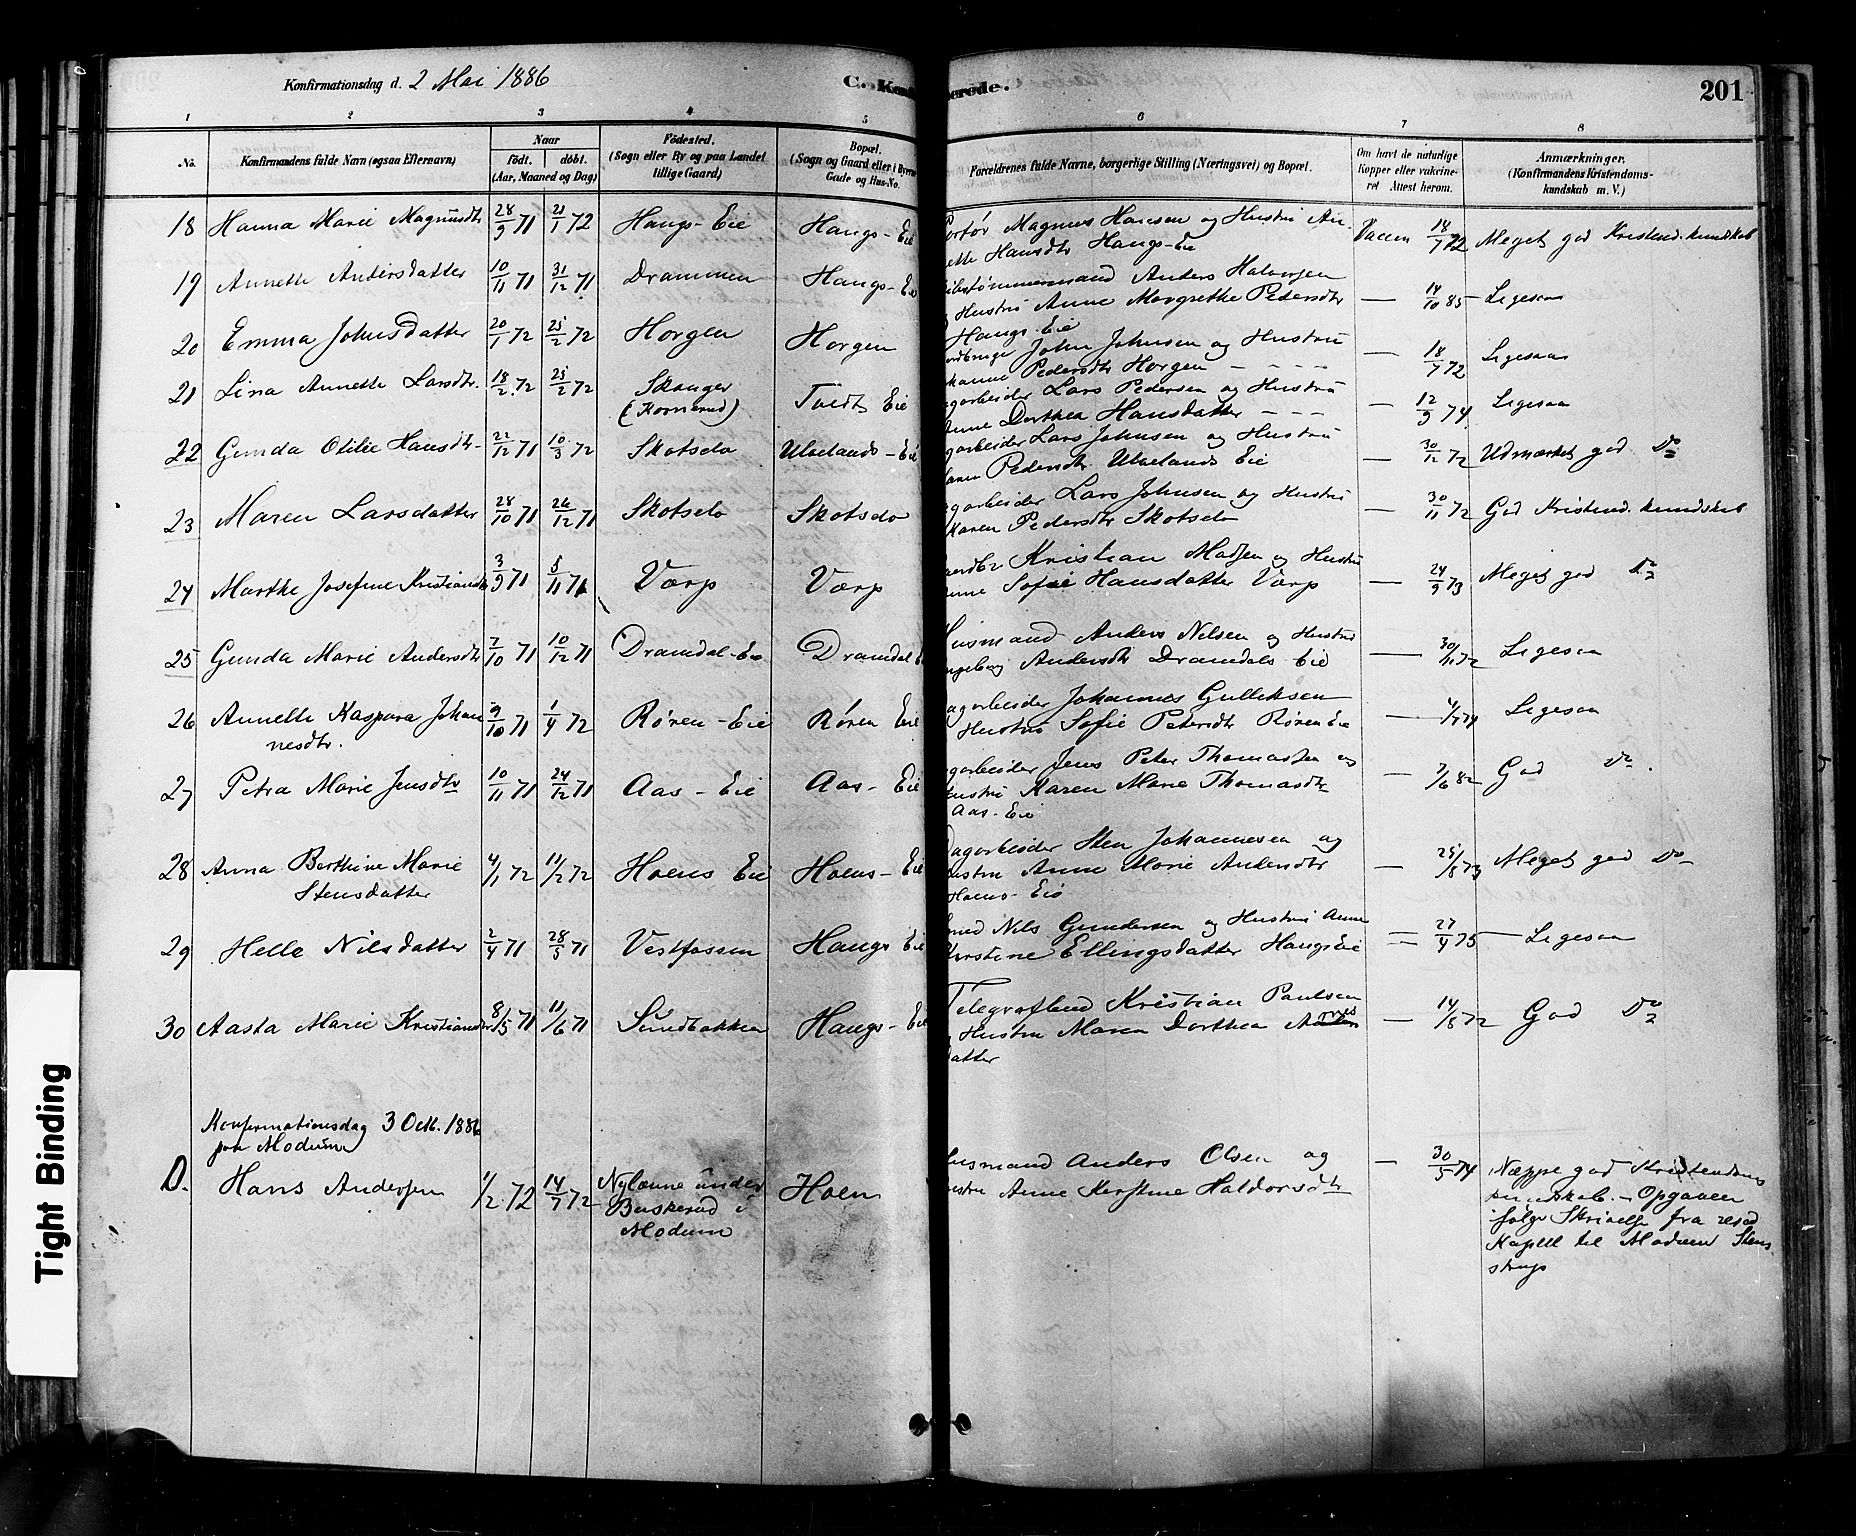 Konfirmationsdag d. 2 Mai 1886
C. Konf
erede.
201
1 2 3 4 5 6 7 8
No.
Konfirmandens fulde Navn (ogsaa Efternavn)
Naar
födt. döbt.
(Aar, Maaned og Dag)
Födested.
(Sogn eller By og paa Landet
tillige Gaard)
Bopæl.
(Sogn og Gaard eller i Byerne
Gade og Hus-No.
Forældrenes fulde Navne, borgerlige Stilling (Næringsvei) og Bopæl.
Om havt de naturlige
Kopper eller vakcine-
ret Attest herom.
Anmærkninger.
(Konfirmandens Kristendoms-
kundskab m. V.)
18 Hanna Marie Magnusdtr 28/9 71 21/1 72 Haugs-Eie Haugs-Eie Magnus Hansen og Hustru An
ette Hansdtr Haugs-Eie Vaccin 18/7 72 Meget god Kristend.kundskab
19 Annette Andersdatter 10/11 71 31/12 71 Drammen Haugs-Eie Anders Halvorsen
Hustru Anne Margrethe Pedersdtr — 14/10 85 Ligesaa
Haugs-Eie
20 Emma Johnsdatter 20/1 72 25/2 72 Horgen Horgen John Johnsen og Hustru
Pedersdtr Horgen — 18/7 72 Ligesaa
21 Lina Annette Larsdtr. 18/2 72 25/2 72 Skanger
(Kornerud) Tvedt Eie agarbeider Lars Pedersen og Hustru
Anne Dorthea Hansdatter — 12/9 74 Ligesaa
22 Gunda Otilie Hansdtr 22/12 71 10/3 72 Skotselv Ulvelands-Eie agarbeider Lars Johnsen og Hustru
Karen Pedersdtr Ulvelands Eie — 30/12 72 Udmærket god Do
23 Maren Larsdatter 28/10 71 26/12 71 Skotselv Skotselv agarbeider Lars Johnsen og Hustru
Karen Pedersdtr Skotselv 30/11 72 God Kristend.kundskab
24 Marthe Josefine Kristiansdtr 3/9 71 5/11 71 Værp Værp Kristian Madsen og Hustru
Anne Sofie Hansdatter Værp — 24/9 73 Meget god Do
25 Gunda Marie Andersdtr 7/10 71 10/12 71 Dramdal-Eie Dramdal Eie Husmand Anders Nilsen og Hustru
Ingeborg Andersdtr Dramdals Eie — 30/11 72 Ligesaa
26 Annette Kaspara Johan
nesdtr. 9/10 71 1/4 72 Røren-Eie Røren Eie agarbeider Johannes Gulliksen
Hustru Sofie Petersdtr Røren Eie — Ligesaa
27 Petra Marie Jensdtr 10/11 71 24/12 71 Aas-Eie Aas-Eie agarbeider Jens Peter Thomassen og
ustru Karen Marie Thomasdtr
Aas-Eie — 7/6 82 God Do.
28 Anna Berthine Marie
Stensdatter 4/1 72 11/2 72 Hoens Eie Hoens-Eie Dagarbeider Sten Johannesen og
ustru Anne Marie Andersdtr
Hoens-Eie — 25/8 73 Meget god Do
29 Helle Nilsdatter 2/4 71 28/5 71 Vestfossen Haugs Eie Nils Gundersen og Hustru Anne
Kirstine Ellingsdatter Haugs Eie — 27/4 75 Ligesaa
30 Aasta Marie Kristiansdtr 8/5 71 11/6 71 Sundbakken Haugs-Eie Telegrafbud Kristian Paulsen
Hustru Maren Dorthea
datter — 14/8 72 God Do
Konfirmationsdag 3 Okt. 1886
paa Modum
D. Hans Andersen 1/2 72 14/7 72 Nylænne under
Buskerud i
Modum Hoen usmand Anders Olsen og
ustru Anne Kirstine Haldorsdtr — 30/5 74 Næppe god Kristendoms
kundskab. – Opgaven
følge Skrivelse fra resid
Kapell til Modum Stens-
strup
Tight Binding